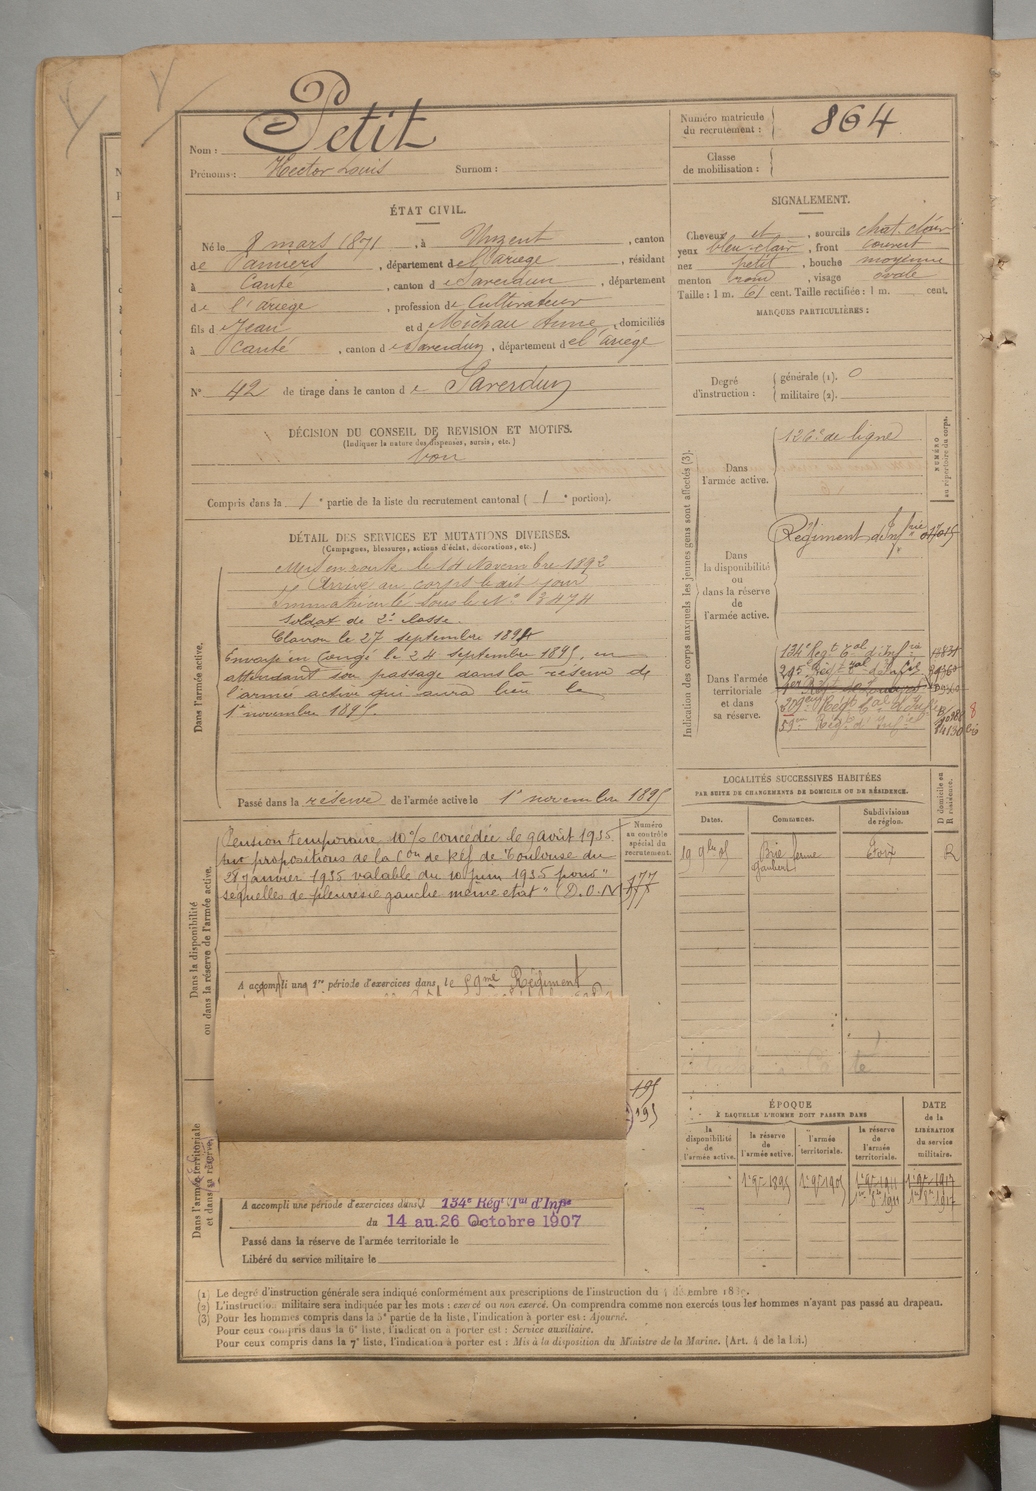 Nom : Petit
Prénoms : Hector Louis Surnom :
Numéro matricule du recrutement : 864
Classe de mobilisation :
ÉTAT CIVIL.
Né le 8 mars 1871, à Unzent, canton
de Pamiers, département de l'Ariège, résidant
à Canté, canton de Saverdun, département
de l'Ariège, profession de Cultivateur
fils de Jean et de Michau Anne, domiciliés
à Canté, canton de Saverdun, département de l'Ariège
N° 42 de tirage dans le canton de Saverdun
SIGNALEMENT.
Cheveux et, sourcils chat. clair
yeux bleu clair, front couvert
nez petit, bouche moyenne
menton rond, visage ovale
Taille : 1 m. 61 cent. Taille rectifiée : 1 m. cent.
MARQUES PARTICULIÈRES :
Degré d'instruction : générale (1). 0
militaire (2).
DÉCISION DU CONSEIL DE REVISION ET MOTIFS.
(Indiquer la nature des dispenses, sursis, etc.)
bon
Compris dans la 1e partie de la liste du recrutement cantonal ( 1e portion).
DÉTAIL DES SERVICES ET MUTATIONS DIVERSES.
(Campagnes, blessures, actions d'éclat, décorations, etc.)
Dans l'armée active.
Mis en route le 14 Novembre 1892
Arrivé au corps le dit jour
Immatriculé sous le N° 3474
Soldat de 2e classe.
Clairon le 27 septembre 1894
Envoyé en Congé le 24 septembre 1895, en
attendant son passage dans la réserve de
l'armée active qui aura lieu le
1er novembre 1895.
Passé dans la réserve de l'armée active le 1er novembre 1895
Dans la disponibilité ou dans la réserve de l'armée active.
Pension temporaire 10% concédée le 9 août 1935
sur propositions de la Con de Réf de Toulouse du
28 janvier 1935 valable du 10 juin 1935 pour "
séquelles de pleurésie gauche même état " (D.O.N)
Numéro au contrôle spécial du recrutement.
A accompli une 1re période d'exercices dans le 59me Régiment
195
Dans l'armée territoriale et dans sa réserve.
A accompli une période d'exercices dans l 134e Régt Tal d'Infie
du 14 au 26 Octobre 1907
Passé dans la réserve de l'armée territoriale le
Libéré du service militaire le
Indication des corps auxquels les jeunes gens sont affectés (3).
NUMÉRO au répertoire du corps.
Dans l'armée active.
126e de ligne
Dans la disponibilité ou dans la réserve de l'armée active.
Régiment d'Infrie
Dans l'armée territoriale et dans sa réserve.
134e Régt Tal d'Infrie
59e Régt d'Infie
LOCALITÉS SUCCESSIVES HABITÉES
PAR SUITE DE CHANGEMENTS DE DOMICILE OU DE RÉSIDENCE.
Dates. Communes. Subdivisions de région. D domicile ou R résidence.
Brie ferme Foix R
ÉPOQUE
À LAQUELLE L'HOMME DOIT PASSER DANS
la disponibilité de l'armée active. la réserve de l'armée active. l'armée territoriale. la réserve de l'armée territoriale.
DATE de la LIBÉRATION du service militaire.
(1) Le degré d'instruction générale sera indiqué conformément aux prescriptions de l'instruction du décembre
(2) L'instruction militaire sera indiquée par les mots : exercé ou non exercé. On comprendra comme non exercés tous les hommes n'ayant pas passé au drapeau.
(3) Pour les hommes compris dans la 5e partie de la liste, l'indication à porter est : Ajourné.
Pour ceux compris dans la 6e liste, l'indication à porter est : Service auxiliaire.
Pour ceux compris dans la 7e liste, l'indication à porter est : Mis à la disposition du Ministre de la Marine. (Art. 4 de la loi.)